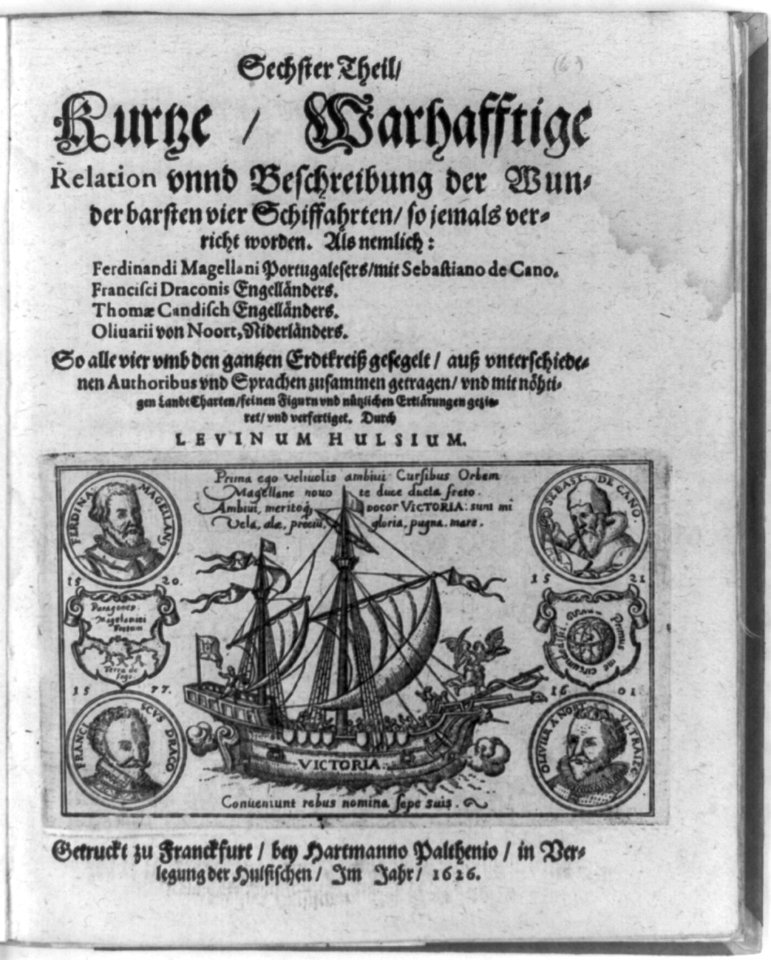 Sechster Theil/
Kurtze / Warhafftige
Relation vnnd Beschreibung der Wun-
derbarsten vier Schiffahrten/ so jemals ver-
richt worden. Als nemlich:
Ferdinandi Magellani Portugalesers/mit Sebastiano de Cano.
Francisci Draconis Engelländers.
Thomæ Candisch Engelländers.
Oliuarii von Noort, Niderländers.
So alle vier vmb den gantzen Erdtkreiß gesegelt/ auß vnterschiede-
nen Authoribus vnd Sprachen zusammen getragen/ vnd mit nöhti-
gen Landt Charten/ feinen Figurn vnd nützlichen Erklärungen gezie-
ret/ vnd verfertiget. Durch
LEVINUM HULSIUM.
Prima ego veliuolis ambiui Cursibus Orbem
Magellane nouo te duce ducta freto.
Ambiui, meritoq vocor VICTORIA: sunt mi
Vela, alæ, preciũ, gloria, pugna, mare.
FERDINA. MAGELLAN
SEBAST. DE CANO.
1520.
1521
Patagones.
Magellanici
Fretum
Terra de
fogo.
Primus
me circumdedisti
1577.
1601
FRANCISCVS DRACO
OLIVIER A NORT VLTRAIEC
VICTORIA
Conueniunt rebus nomina sepe suis.
Getruckt zu Franckfurt/ bey Hartmanno Palthenio/ in Ver-
legung der Hulsischen/ Im Jahr/ 1626.